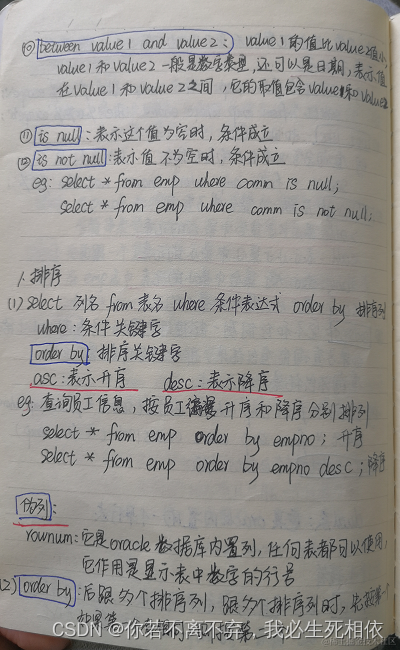 ⑩ between value1 and value2: value1的值比value2值小,
value1和value2一般是数字类型,还可以是日期,表示值
在value1和value2之间,它的取值包含value1和value2
⑪ is null:表示这个值为空时,条件成立
⑫ is not null:表示值不为空时,条件成立
eg: select * from emp where comm is null;
select * from emp where comm is not null;
排序
(1) select 列名 from 表名 where 条件表达式 order by 排序列
where:条件关键字
order by:排序关键字
asc:表示升序 desc:表示降序
eg:查询员工信息,按员工编号升序和降序分别排列
select * from emp order by empno; 升序
select * from emp order by empno desc; 降序
伪列:
rownum:它是oracle数据库内置列,任何表都可以使用,
它作用是显示表中数字的行号
(2) order by:后跟多个排序列,跟多个排序列时,先按第一个
CSDN @你若不离不弃,我必生死相依